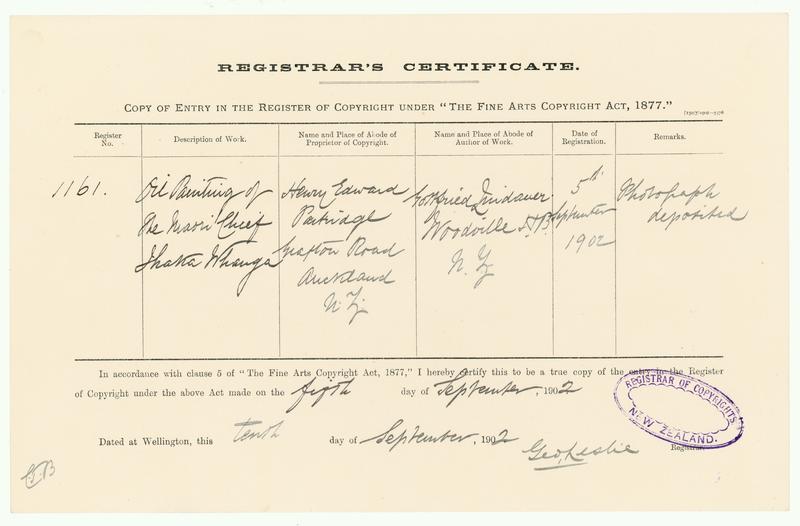 REGISTRAR'S CERTIFICATE.
COPY OF ENTRY IN THE REGISTER OF COPYRIGHT UNDER "THE FINE ARTS COPYRIGHT ACT, 1877."
Register No.
Description of Work.
Name and Place of Abode of Proprietor of Copyright.
Name and Place of Abode of Author of Work.
Date of Registration.
Remarks.
1161.
Oil Painting of
the Maori Chief
Ihaka Whanga
Henry Edward
Partridge
Grafton Road
Auckland
N.Z.
Gottfried Lindauer
Woodville H.B.
N.Z.
5th
September
1902
Photograph
deposited
In accordance with clause 5 of "The Fine Arts Copyright Act, 1877," I hereby certify this to be a true copy of the entry in the Register
of Copyright under the above Act made on the fifth day of September, 1902
Dated at Wellington, this tenth day of September, 1902
Geo. Leslie
Registrar.
REGISTRAR OF COPYRIGHTS
NEW ZEALAND.